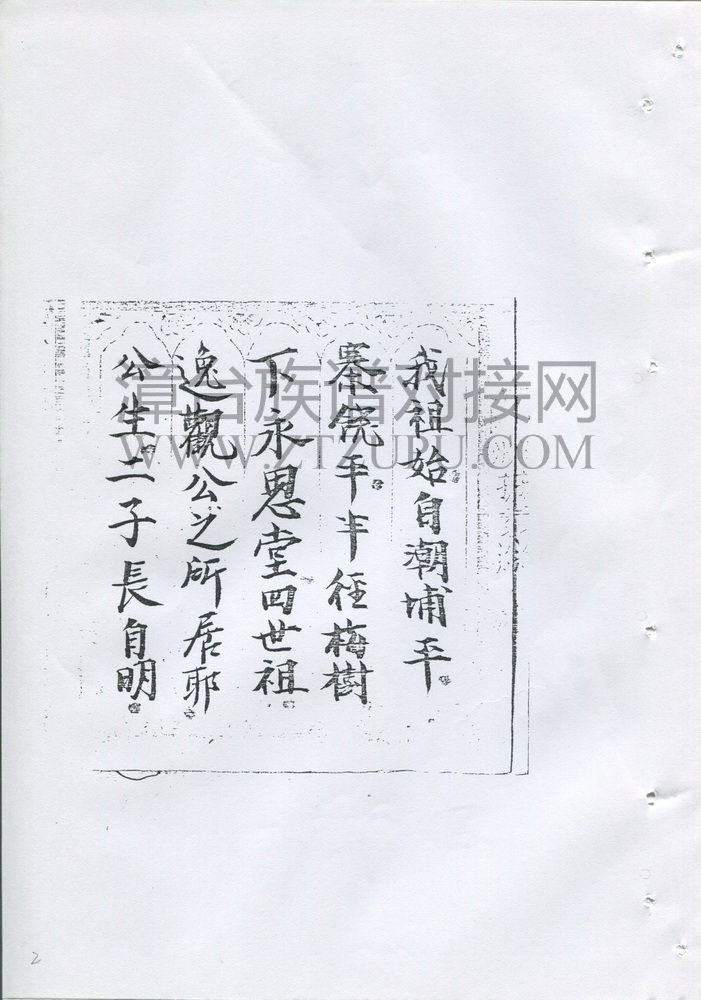 我祖始自潮埔平。
寨院平。半徑梅樹
下永恩堂四世祖。
逸觀公之所居耶。
公生二子長自明。
漳台族谱对接网
WWW.ZTZUPU.COM
2